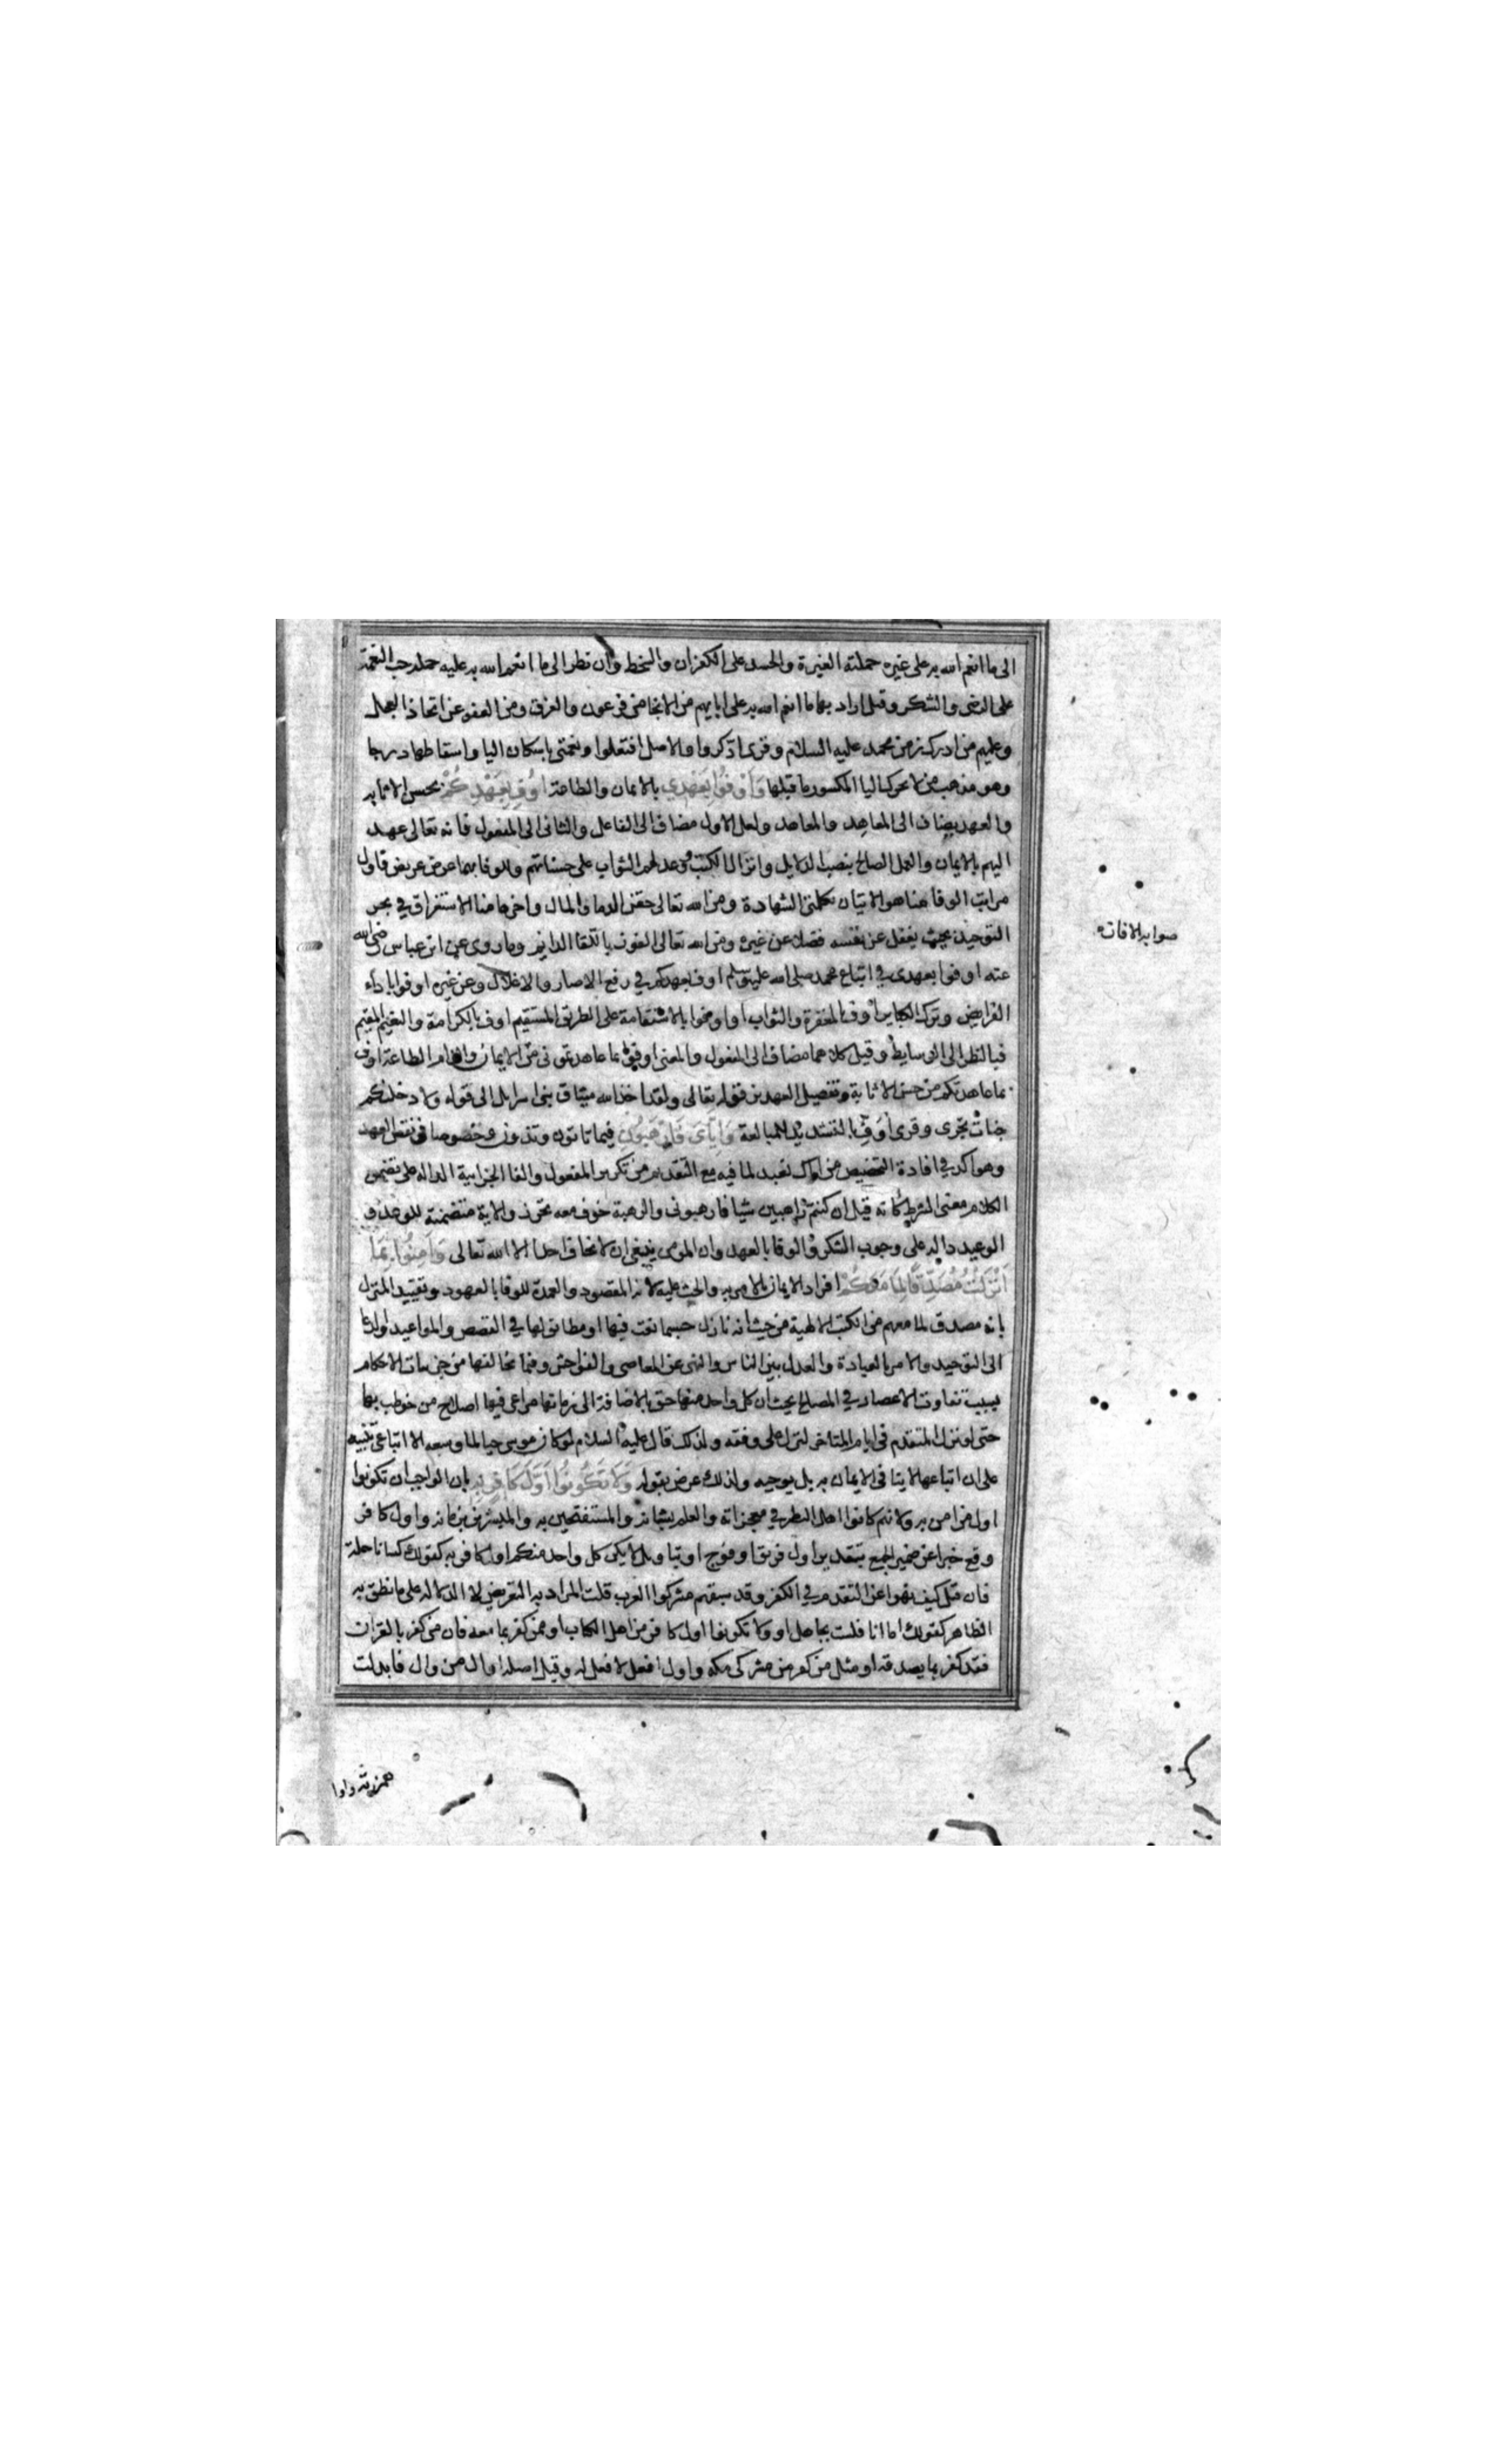 الى ما انعم الله به على غيره حملته الغيرة والحسد على الكفران والسخط وان نظر الى ما انعم الله به عليه حمله حب النعمة
على الرضى والشكر وقيل اراد بها ما انعم الله به على ابايهم من الانجا من فرعون والغرق ومن العفو عن اتخاذ العجل
وعليهم من ادرك زمن محمد عليه السلام وقرى اذكروا والاصل افتعلوا ونعمتي باسكان اليا واسقاطها درجا
وهو مذهب من لا يحرك اليا المكسور ما قبلها وَاَوْفُوا بِعَهْدِي بالايمان والطاعة اُوفِ بِعَهْدِكُمْ بحسن الاثابه
والعهد يضاف الى المعاهِد والمعاهَد ولعل الاول مضاف الى الفاعل والثانى الى المفعول فانه تعالى عهد
اليهم بالايمان والعمل الصالح بنصب الدلايل وانزال الكتب ووعد لهم الثواب على حسناتهم وللوفا بهما عرض عريض فاول
مراتب الوفا مناهو الاتيان بكلمتي الشهادة ومن الله تعالى حقن الدما والمال واخرها منا الاستغراق في بحر
التوحيد بحيث يغفل عن نفسه فضلا عن غيره ومن الله تعالى الفوز باللقا الدايم وما روى عن ابن عباس رضي الله
عنه اوفوا بعهدى في اتباع محمد صلى الله عليه وسلم اوف بعهدكم في رفع الاصار والاغلال وعن غيره اوفوا باداء
الفرايض وترك الكباير اوف بالمغفرة والثواب او اوفوا بالاستقامة على الطريق المستقيم اوف بالكرامة والنعيم المقيم
فبالنظر الى الوسايط وقيل كلاهما مضاف الى المفعول والمعنى اوفوا بما عاهدتمونى من الايمان والتزام الطاعة اوف
بما عاهدتكم من حسن الاثابة وتفصيل العهدين قوله تعالى ولقد اخذ الله ميثاق بنى اسرايل الى قوله ولادخلنكم
جنات تجرى وقرى اُوَفِّ بالتشديد للمبالغة وَاِيَّايَ فَارْهَبُونِ فيما تاتون وتذرون وخصوصا في نقض العهد
وهو اكد في افادة التخصيص من اياك نعبد لما فيه مع التقديم من تكرير المفعول والفا الجزايية الداله على تضمن
الكلام معنى الشرط كانه قيل ان كنتم راهبين شيا فارهبونى والرهبة خوف معه تحرز والاية متضمنة للوعد و
الوعيد دالة على وجوب الشكر والوفا بالعهد وان المومن ينبغى ان لا يخاف احدا الا الله تعالى وَآمِنُوا بِمَا
اَنْزَلْتُ مُصَدِّقًا لِمَا مَعَكُمْ افراد الايمان بالامر به والحث عليه لانه المقصود والعمدة للوفا بالعهود وتقييد المنزل
بانه مصدق لما معهم من الكتب الالهية من حيث انه نازل حسبما نعت فيها او مطابق لها في القصص والمواعيد والدعا
الى التوحيد والامر بالعبادة والعدل بين الناس والنهى عن المعاصى والفواحش وفيما يخالفها من جزيات الاحكام
بسبب تفاوت الاعصار في المصالح بحيث ان كل واحد منها حق بالاضافة الى زمانها مراعى فيها اصلاح من خوطب بها
حتى لو نزل المتقدم في ايام المتاخر لنزل على وفقه ولذلك قال عليه السلام لو كان موسى حيا لما وسعه الا اتباعى تنبيه
على ان اتباعها لا ينافى الايمان به بل يوجبه ولذلك عرض بقوله وَلَا تَكُونُوا اَوَّلَ كَافِرٍ بِهِ بان الواجب ان تكونوا
اول من امن به ولانهم كانوا اهل النظر في معجزاته والعلم بشانه والمستفتحين به والمبشرين بزمانه واول كافر
وقع خبرا عن ضمير الجمع بتقدير اول فريق او فوج او بتاويل لا يكن كل واحد منكم اول كافر به كقولك كسانا حلة
فان قيل كيف نهوا عن التقدم في الكفر وقد سبقهم مشركوا العرب قلت المراد به التعريض لا الدلاله على ما نطق به
الظاهر كقولك اما انا فلست بجاهل او ولا تكونوا اول كافر من اهل الكتاب او ممن كفر بما معه فان من كفر بالقران
فقد كفر بما يصدقه او مثل من كفر من مشركى مكه واول افعل لا فعل له وقيل اصله اوال من وال فابدلت
صوابه الافات
همزته واوا